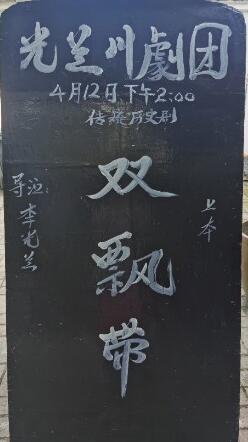 光兰川劇团
4月12日下午2:00
传统历史剧
双飘带
上本
导演:李光兰